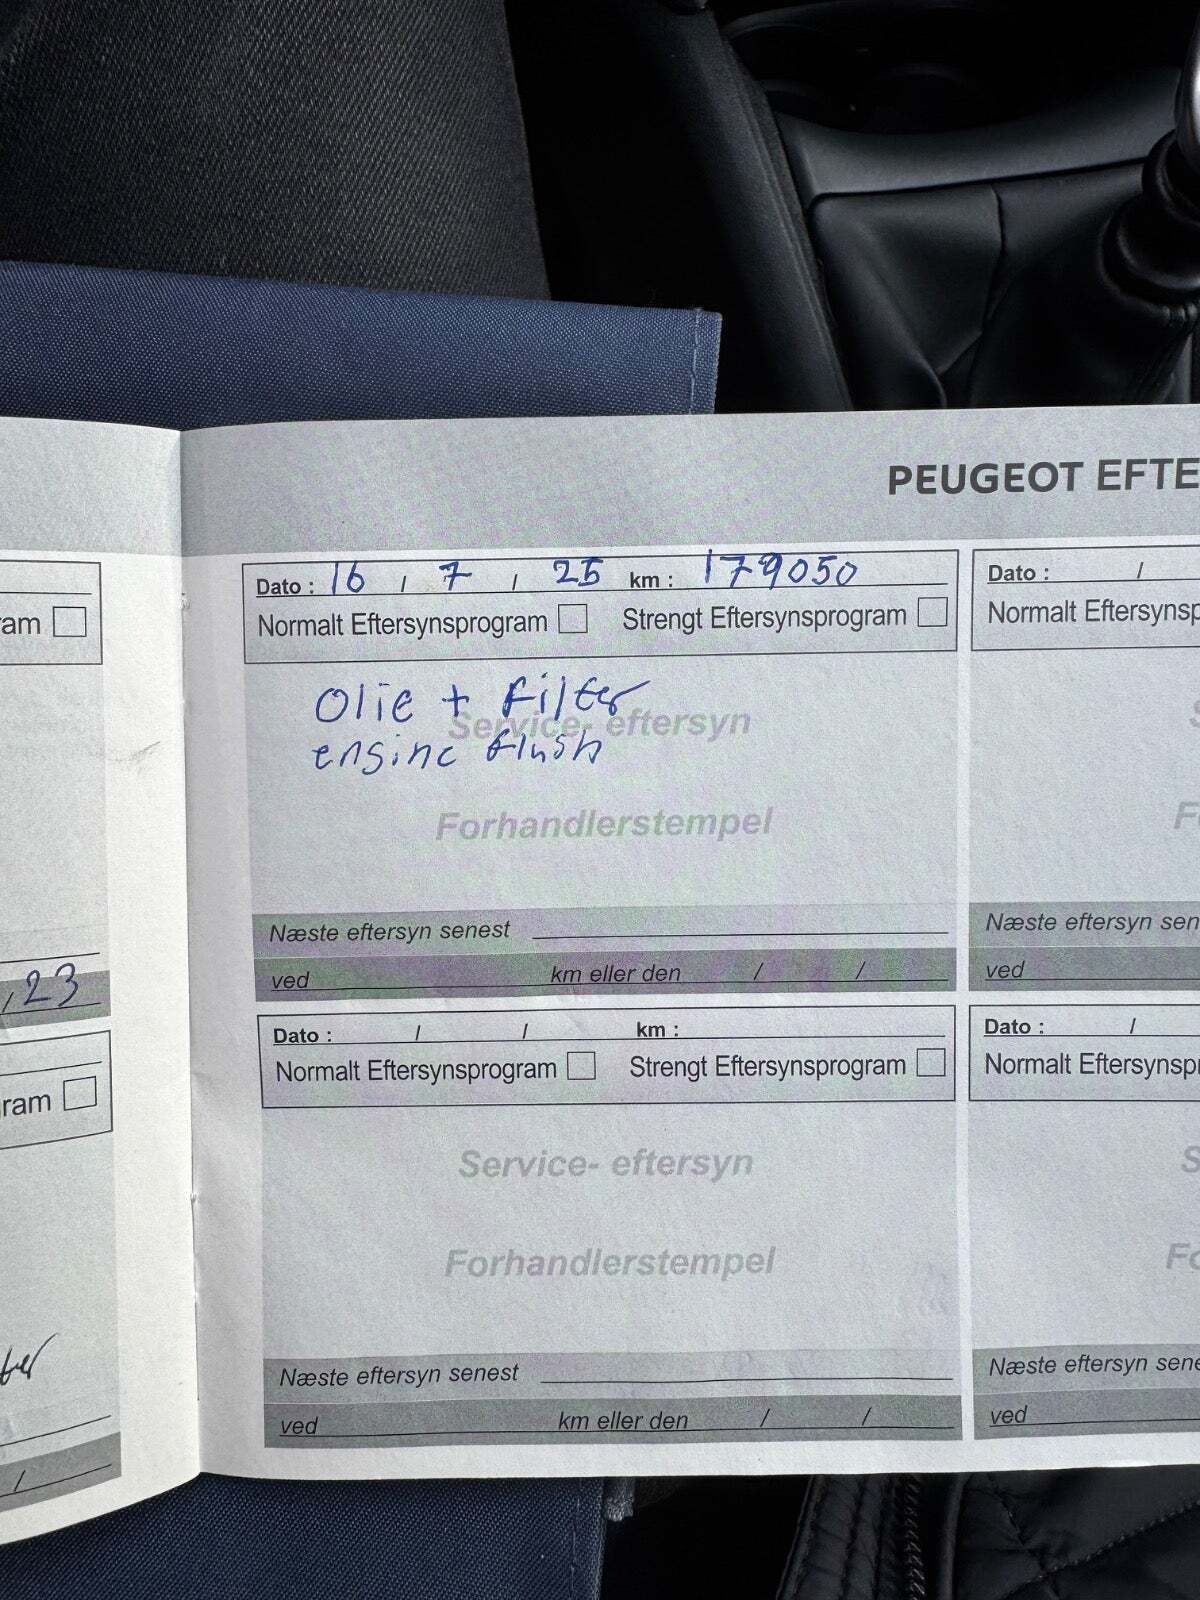 PEUGEOT EFTE
Dato : 16 / 7 / 25 km : 179050
Normalt Eftersynsprogram Strengt Eftersynsprogram
Olie + filter
Service- eftersyn
engine flush
Forhandlerstempel
Næste eftersyn senest
ved km eller den / /
Dato : / / km :
Normalt Eftersynsprogram Strengt Eftersynsprogram
Service- eftersyn
Forhandlerstempel
Næste eftersyn senest
ved km eller den / /
ram
/ 23
ram
/
Dato : /
Normalt Eftersynsp
F
Næste eftersyn sen
ved
Dato : /
Normalt Eftersynspr
S
Fo
Næste eftersyn sene
ved